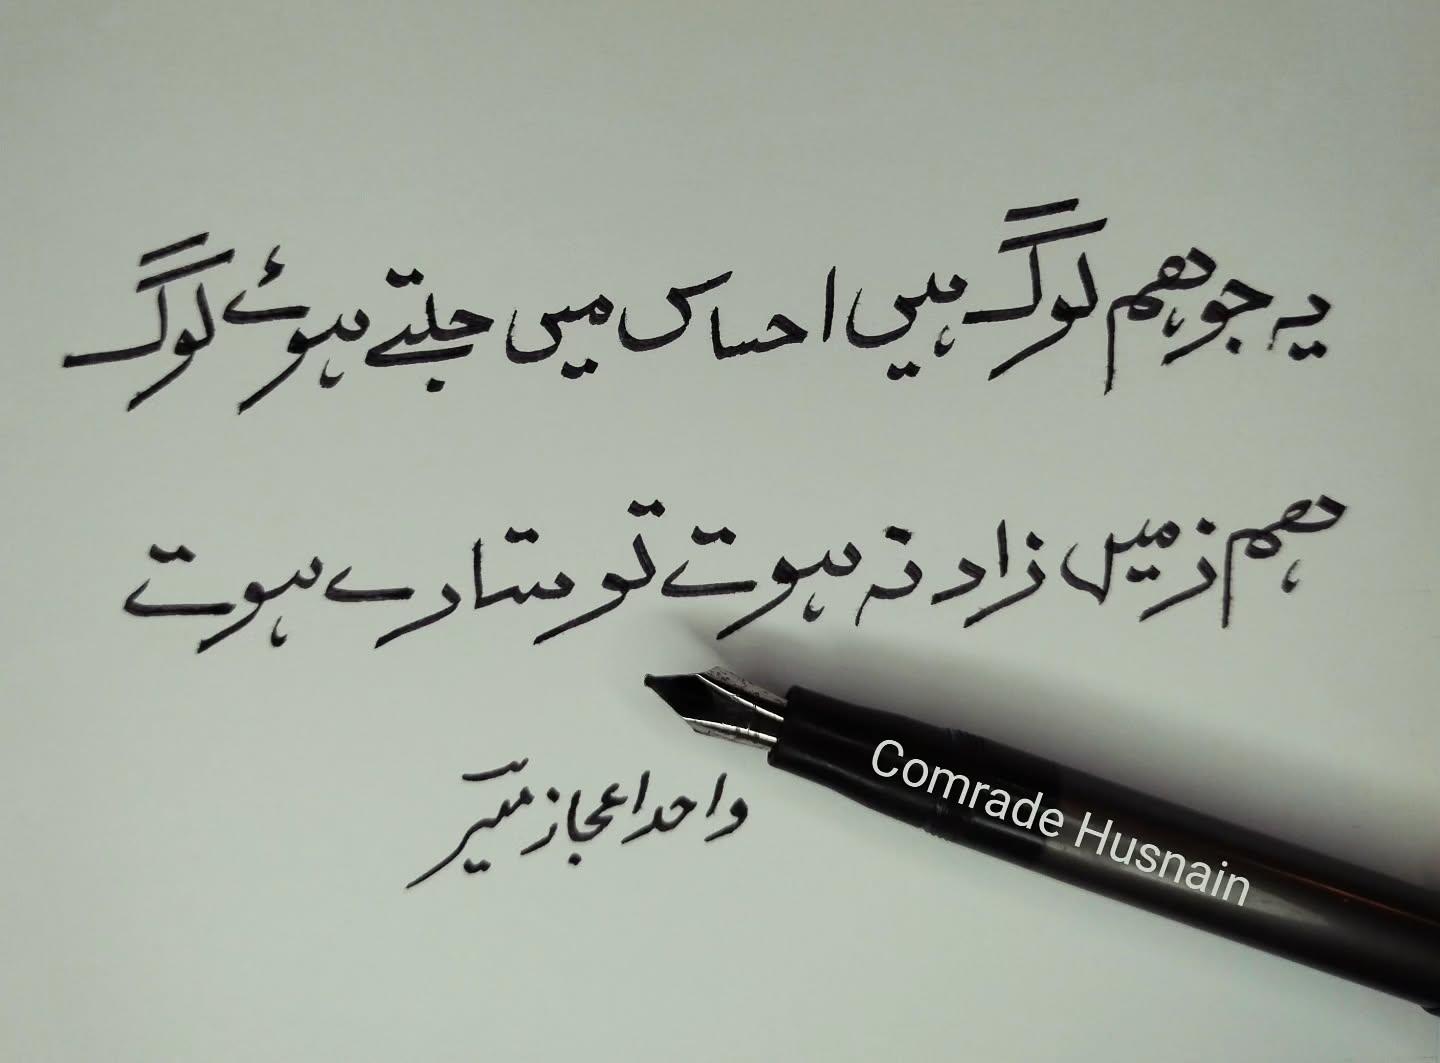 یہ جو ہم لوگ ہیں احساس میں جلتے ہوئے لوگ
ہم زمیں زاد نہ ہوتے تو ستارے ہوتے
واحد اعجاز میرؔ
Comrade Husnain